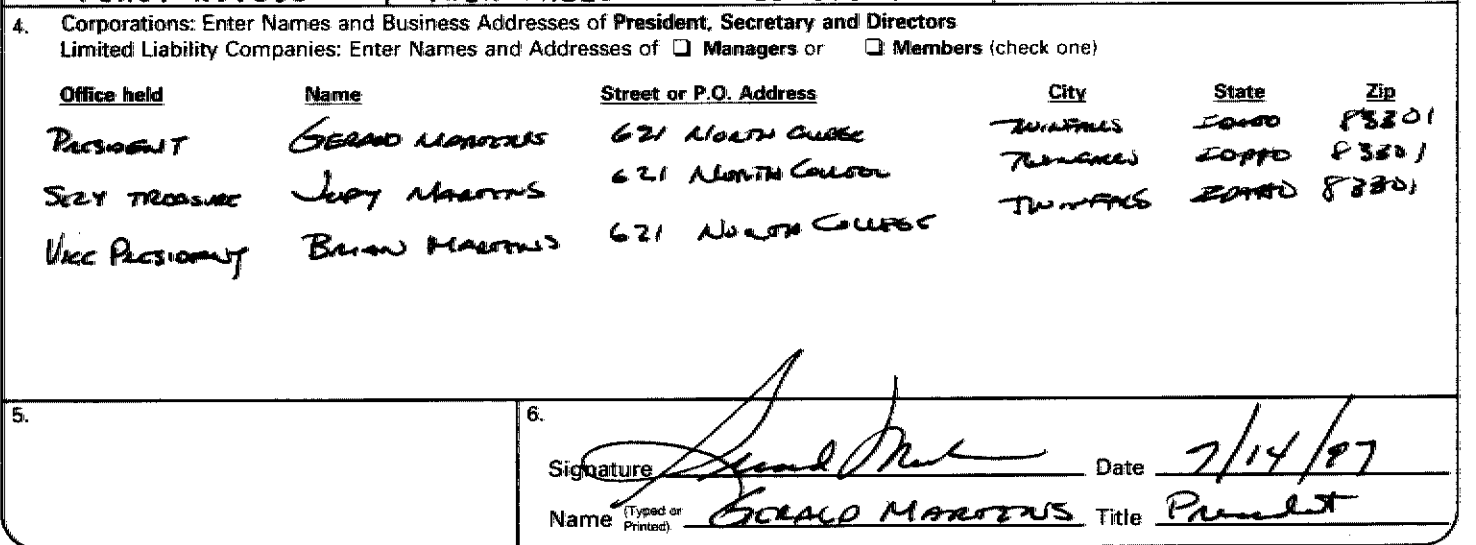 4. Corporations: Enter Names and Business Addresses of President, Secretary and Directors
Limited Liability Companies: Enter Names and Addresses of ❑ Managers or ❑ Members (check one)
Office held Name Street or P.O. Address City State Zip
PRESIDENT GERALD MARTENS 621 NORTH COLLEGE TWIN FALLS IDAHO 83301
SEZY TREASURE JUDY MARTENS 621 NORTH COLLEGE TWIN FALLS IDAHO 83301
VICE PRESIDENT BRIAN MARTENS 621 NORTH COLLEGE TWIN FALLS IDAHO 83301
5. 6.
Signature Gerald Martens Date 7/14/97
Name (Typed or Printed) GERALD MARTENS Title President